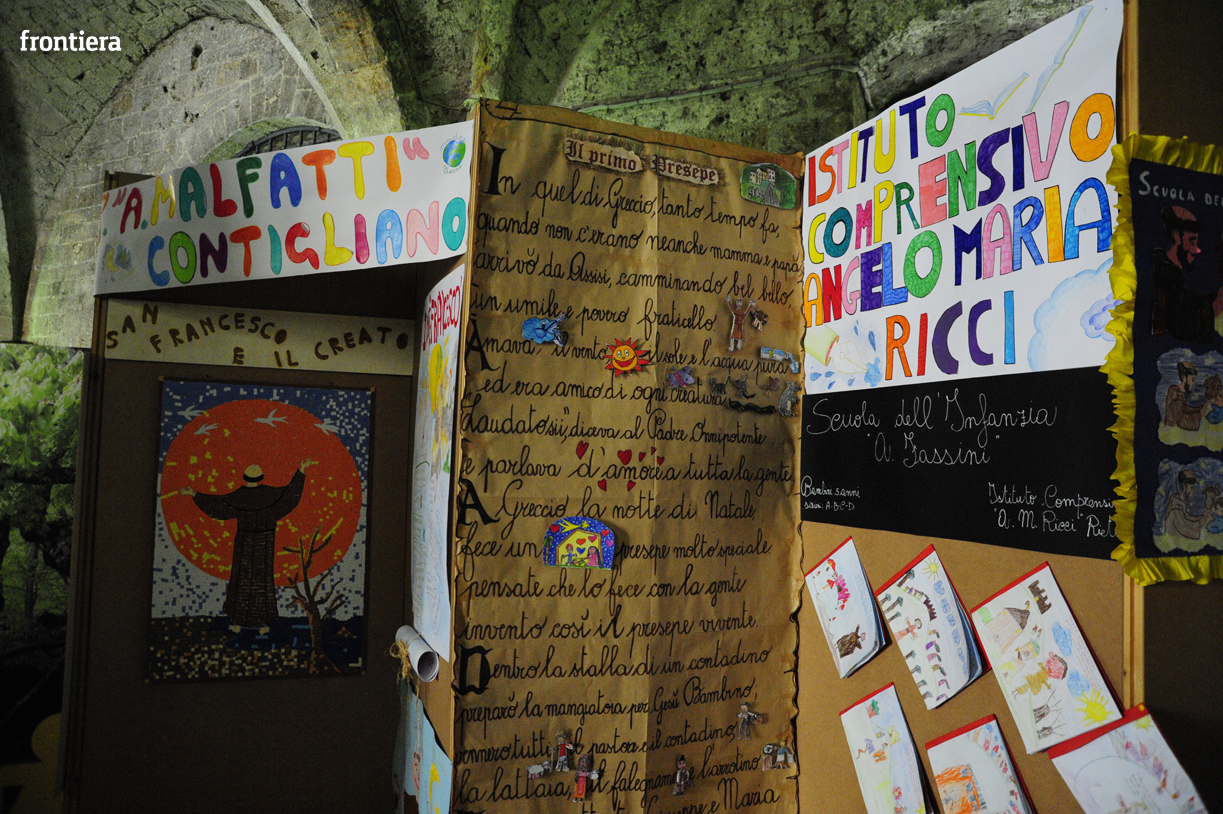 frontiera
"A. MALFATTI"
CONTIGLIANO
SAN
FRANCESCO
E IL CREATO
Il primo Presepe
In quel di Greccio, tanto tempo fa,
quando non c'erano neanche mamma e papà
arrivò da Assisi, camminando bel bello
un umile e povero fraticello.
Amava il vento il sole e l'acqua pura
ed era amico di ogni creatura
"Laudato sii", diceva al Padre Onnipotente
e parlava d'amore a tutta la gente
A Greccio la notte di Natale,
fece un presepe molto speciale
pensate che lo fece con la gente
inventò così il presepe vivente.
Dentro la stalla di un contadino
preparò la mangiatoia per Gesù Bambino,
vennero tutti: il pastore e il contadino,
la lattaia, il falegname e l'arrotino
Giuseppe e Maria
ISTITUTO
COMPRENSIVO
ANGELO MARIA
RICCI
Scuola dell'Infanzia
"A. Fassini"
Bambini 5 anni
sez. A-B-C-D
Istituto Comprensi
"A. M. Ricci" Riet
SCUOLA DE